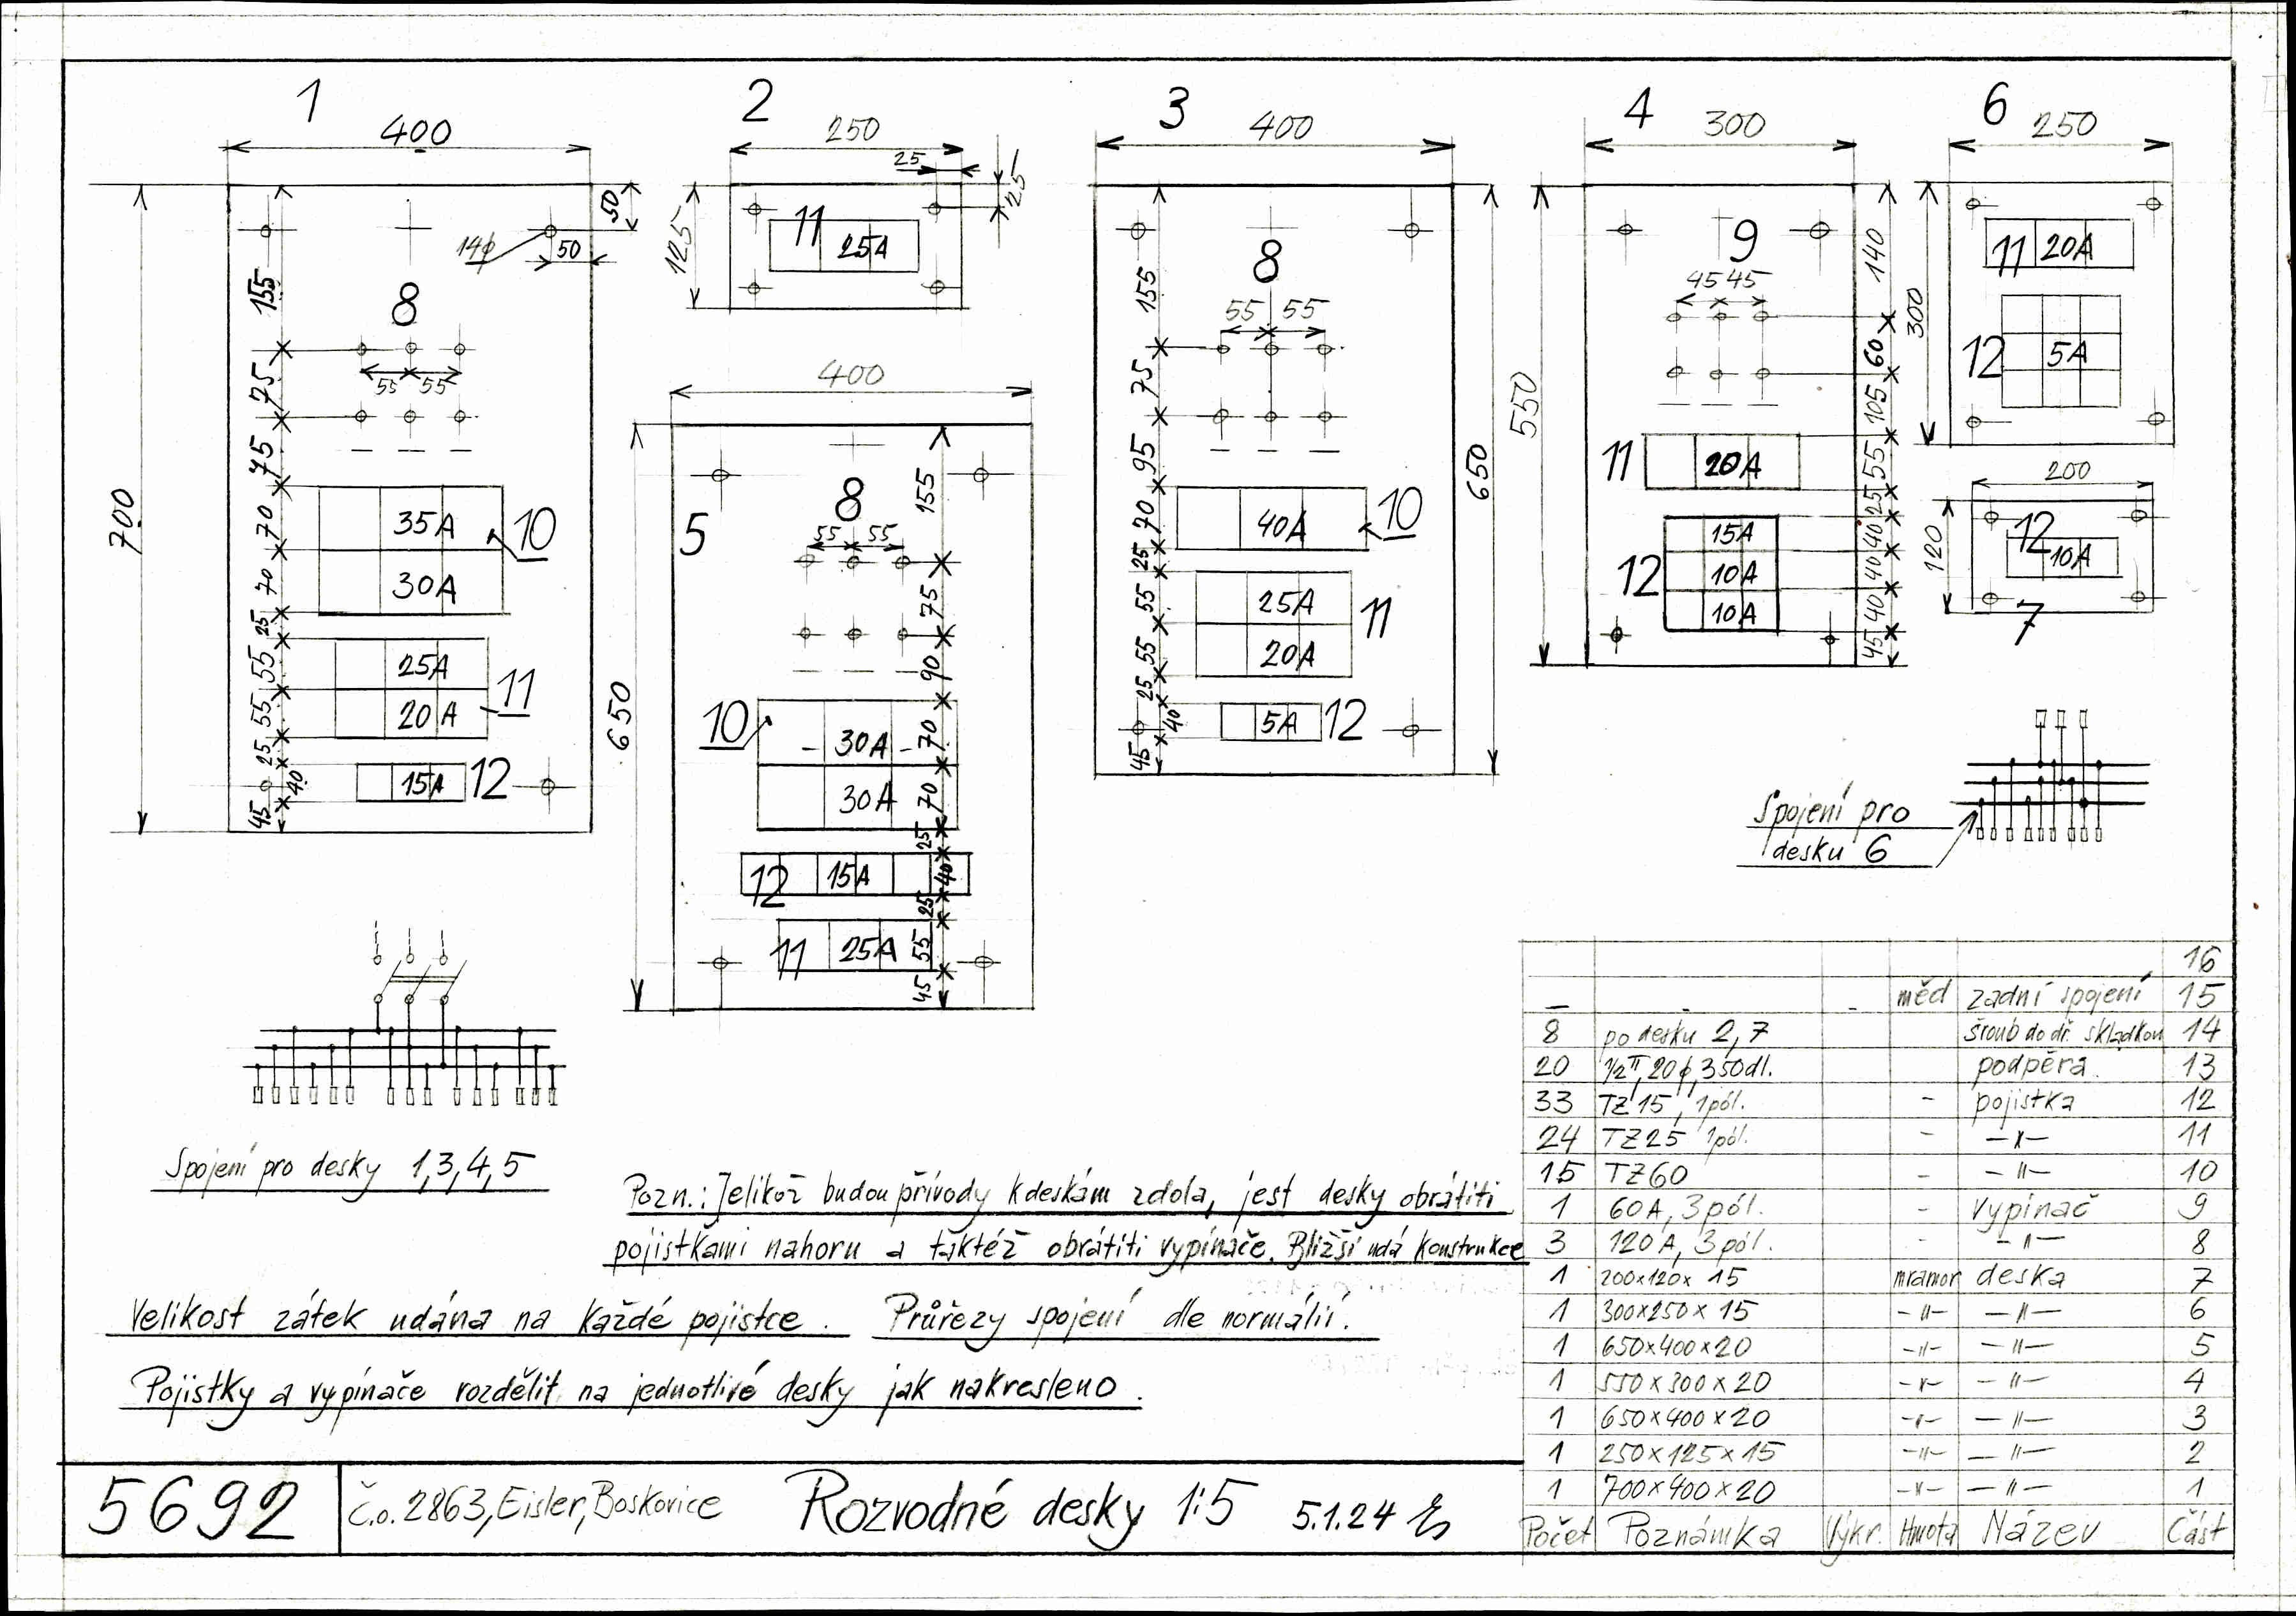 1
400
700
50
50
14φ
155
75
75
70
70
25
55
55
25
40
45
8
55 55
35A
30A
10
25A
20A
11
15A
12
2
250
25
25
125
11
25A
400
5
650
8
55 55
155
75
90
70
70
25
40
25
55
45
10
- 30A -
30A
12
15A
11
25A
3
400
650
155
75
95
70
25
55
55
25
40
45
8
55 55
40A
10
25A
20A
11
5A
12
4
300
550
9
45 45
140
60
105
55
25
40
40
40
45
11
20A
12
15A
10A
10A
6
250
300
11
20A
12
5A
200
120
12
10A
7
Spojení pro
desku 6
Spojení pro desky 1,3,4,5
Pozn.: Jelikož budou přívody k deskám zdola, jest desky obrátiti
pojistkami nahoru a taktéž obrátiti vypínače. Bližší udá konstrukce
Velikost zátek udána na každé pojistce. Průřezy spojení dle normálií.
Pojistky a vypínače rozdělit na jednotlivé desky jak nakresleno.
16
— - - měd zadní spojení 15
8 po desku 2,7 šroub do dř. skládkou 14
20 1/2", 20φ, 350dl. podpěra. 13
33 TZ 15, 1pól. - pojistka 12
24 TZ25 1pól. - —〃— 11
15 TZ60 - —〃— 10
1 60A, 3pól. - vypínač 9
3 120A, 3pól. - —〃— 8
1 200×120×15 mramor deska 7
1 300×250×15 -〃- —〃— 6
1 650×400×20 -〃- —〃— 5
1 550×300×20 -〃- —〃— 4
1 650×400×20 -〃- —〃— 3
1 250×125×15 -〃- —〃— 2
1 700×400×20 -〃- —〃— 1
Počet Poznámka Výkr. Hmota Název Část
5692 Č.o. 2863, Eisler, Boskovice Rozvodné desky 1:5 5.1.24